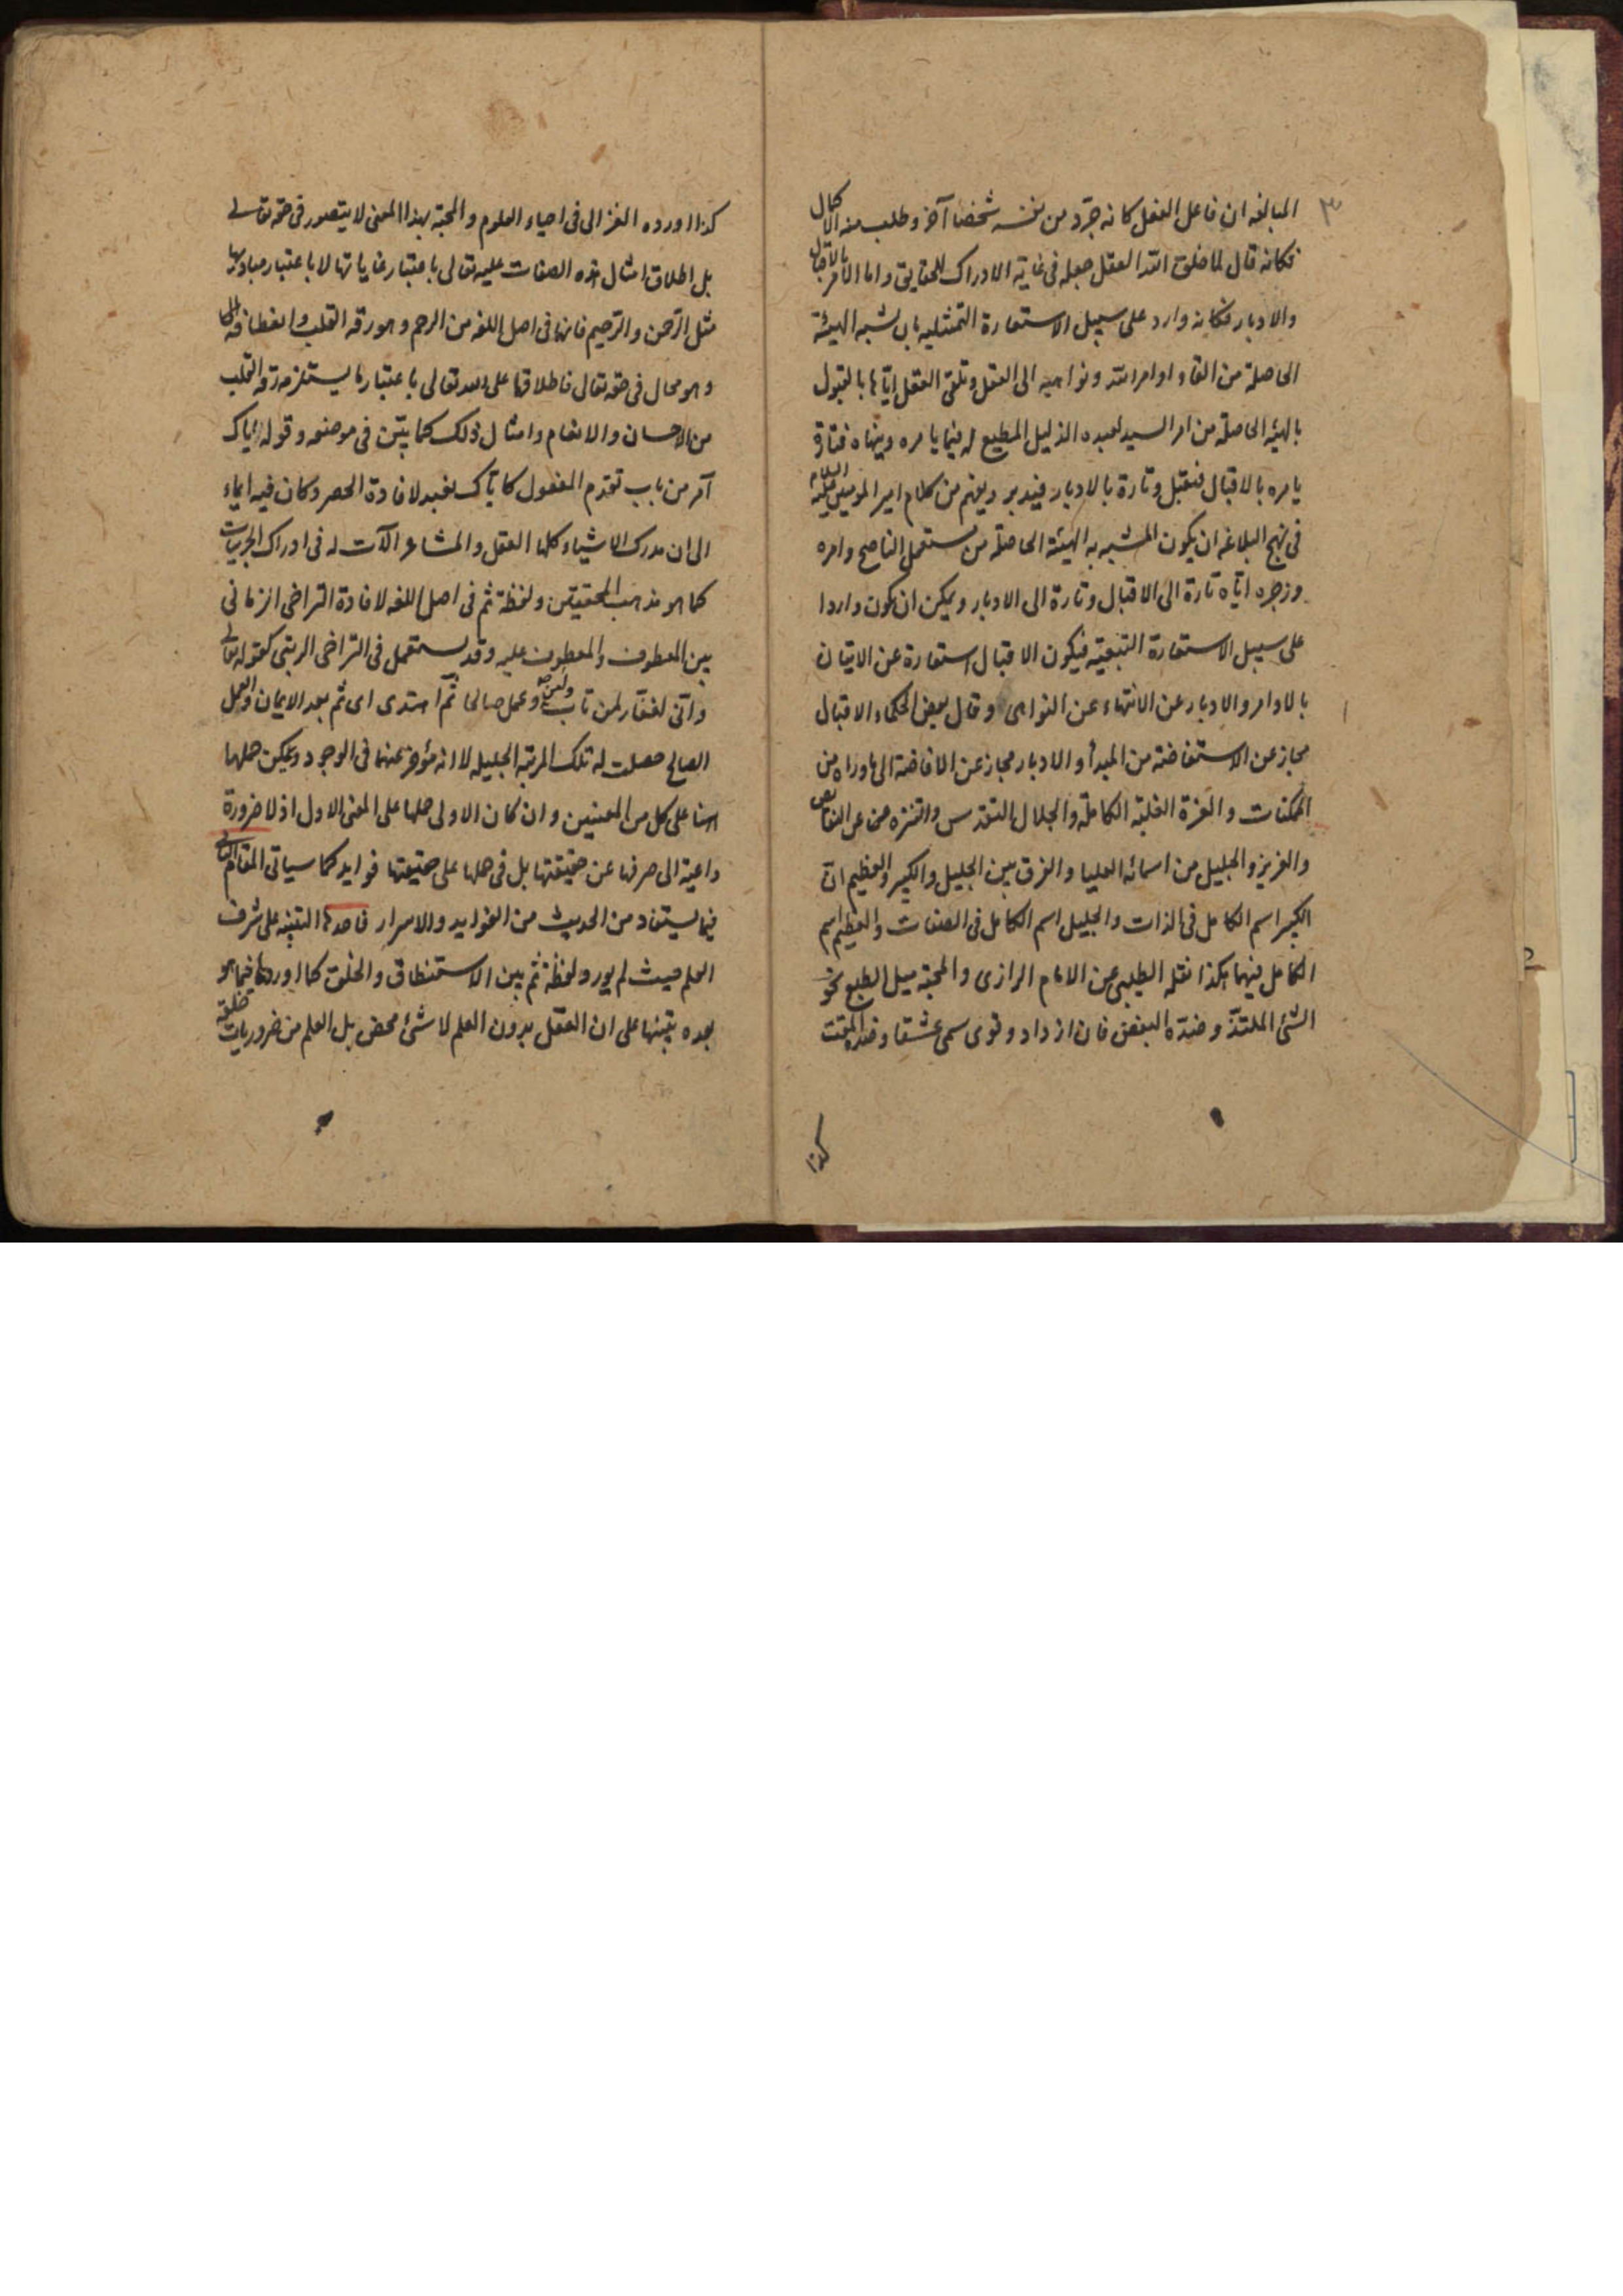 ٣
المبالغه ان فاعل الفعل كانه جرّد من نفسه شخصا آخر وطلب منه الاكمال
فكانه قال لما خلق الله العقل جعله فى غاية الادراك للحقايق واما الامر بالاقبال
والادبار فكانه وارد على سبيل الاستعارة التمثيليه بان شبه الهيئة
الحاصلة من القاء اوامر الله ونواهيه الى العقل وتلقى العقل اياها بالقبول
بالهيئه الحاصلة من امر السيد لعبده الذليل المطيع له فيما يامره وينهاه فتارة
يامره بالاقبال فيقبل وتارة بالادبار فيدبر ويفهم من كلام امير المومنين عليه السلام
فى نهج البلاغه ان يكون المشبه به الهيئة الحاصلة من الناصح وامره
وزجره اياه تارة الى الاقبال وتارة الى الادبار ويمكن ان يكون واردا
على سبيل الاستعارة التبعيّه فيكون الاقبال استعارة عن الاتيان
بالاوامر والادبار عن الانتهاء عن النواهى وقال بعض الحكماء الاقبال
مجاز عن الاستفاضة من المبدأ والادبار مجاز عن الافاضة الى ماوراه من
الممكنات والعزة الغلبة الكاملة والجلال التقدس والتنزه عن النقايص
والعزيز والجليل من اسمائه العليا والفرق بين الجليل والكبير والعظيم ان
الكبير اسم الكامل فى الذات والجليل اسم الكامل فى الصفات والعظيم اسم
الكامل فيهما هكذا نقله الطيبى عن الامام الرازى والمحبة ميل الطبع نحو
الشئ الملتذّ وضدّه البغض فان ازداد وقوى سمى عشقا وضده المقت
كذا
كذا اورده الغزالى فى احياء العلوم والمحبة بهذا المعنى لا يتصور فى حقه تعالى
بل اطلاق امثال هذه الصفات عليه تعالى باعتبار غاياتها لا باعتبار مباديها
مثل الرّحمن والرّحيم فانهما فى اصل اللغه من الرحم وهو رقه القلب وانعطافه
وهو محال فى حقه تعالى فاطلاقها على الله تعالى باعتبار ما يستلزمه رقه القلب
من الاحسان والانعام وامثال ذلك كما بيّن فى موضعه وقوله اياك
آمر من باب تقدم المفعول كاياك نعبد لافادة الحصر وكان فيه ايماء
الى ان مدرك الاشياء كلها العقل والمشاعر الآت له فى ادراك الجزئيات
كما هو مذهب المحققين ولفظة ثم فى اصل اللغه لافادة التراخى الزمانى
بين المعطوف والمعطوف عليه وقد يستعمل فى التراخى الرتبى كقوله تعالى
وانى لغفّار لمن تاب وامن وعمل صالحا ثم اهتدى اى ثم بعد الايمان والعمل
الصالح حصلت له تلك المرتبه الجليله لا انه مؤخر عنهما فى الوجود ويمكن حملها
هنا على كل من المعنيين وان كان الاولى حملها على المعنى الاول اذ لا ضرورة
داعية الى صرفها عن حقيقتها بل فى حملها على حقيقتها فوايد كما سياتى المقام الثانى
فيما يستفاد من الحديث من الفوايد والاسرار فاحدها التنبيه على شرف
العلم حيث لم يورد لفظة ثم بين الاستنطاق والخلق كما اوردها فيما هو
بعده تنبيها على ان العقل بدون العلم لا شئ محض بل العلم من ضروريات خلقه